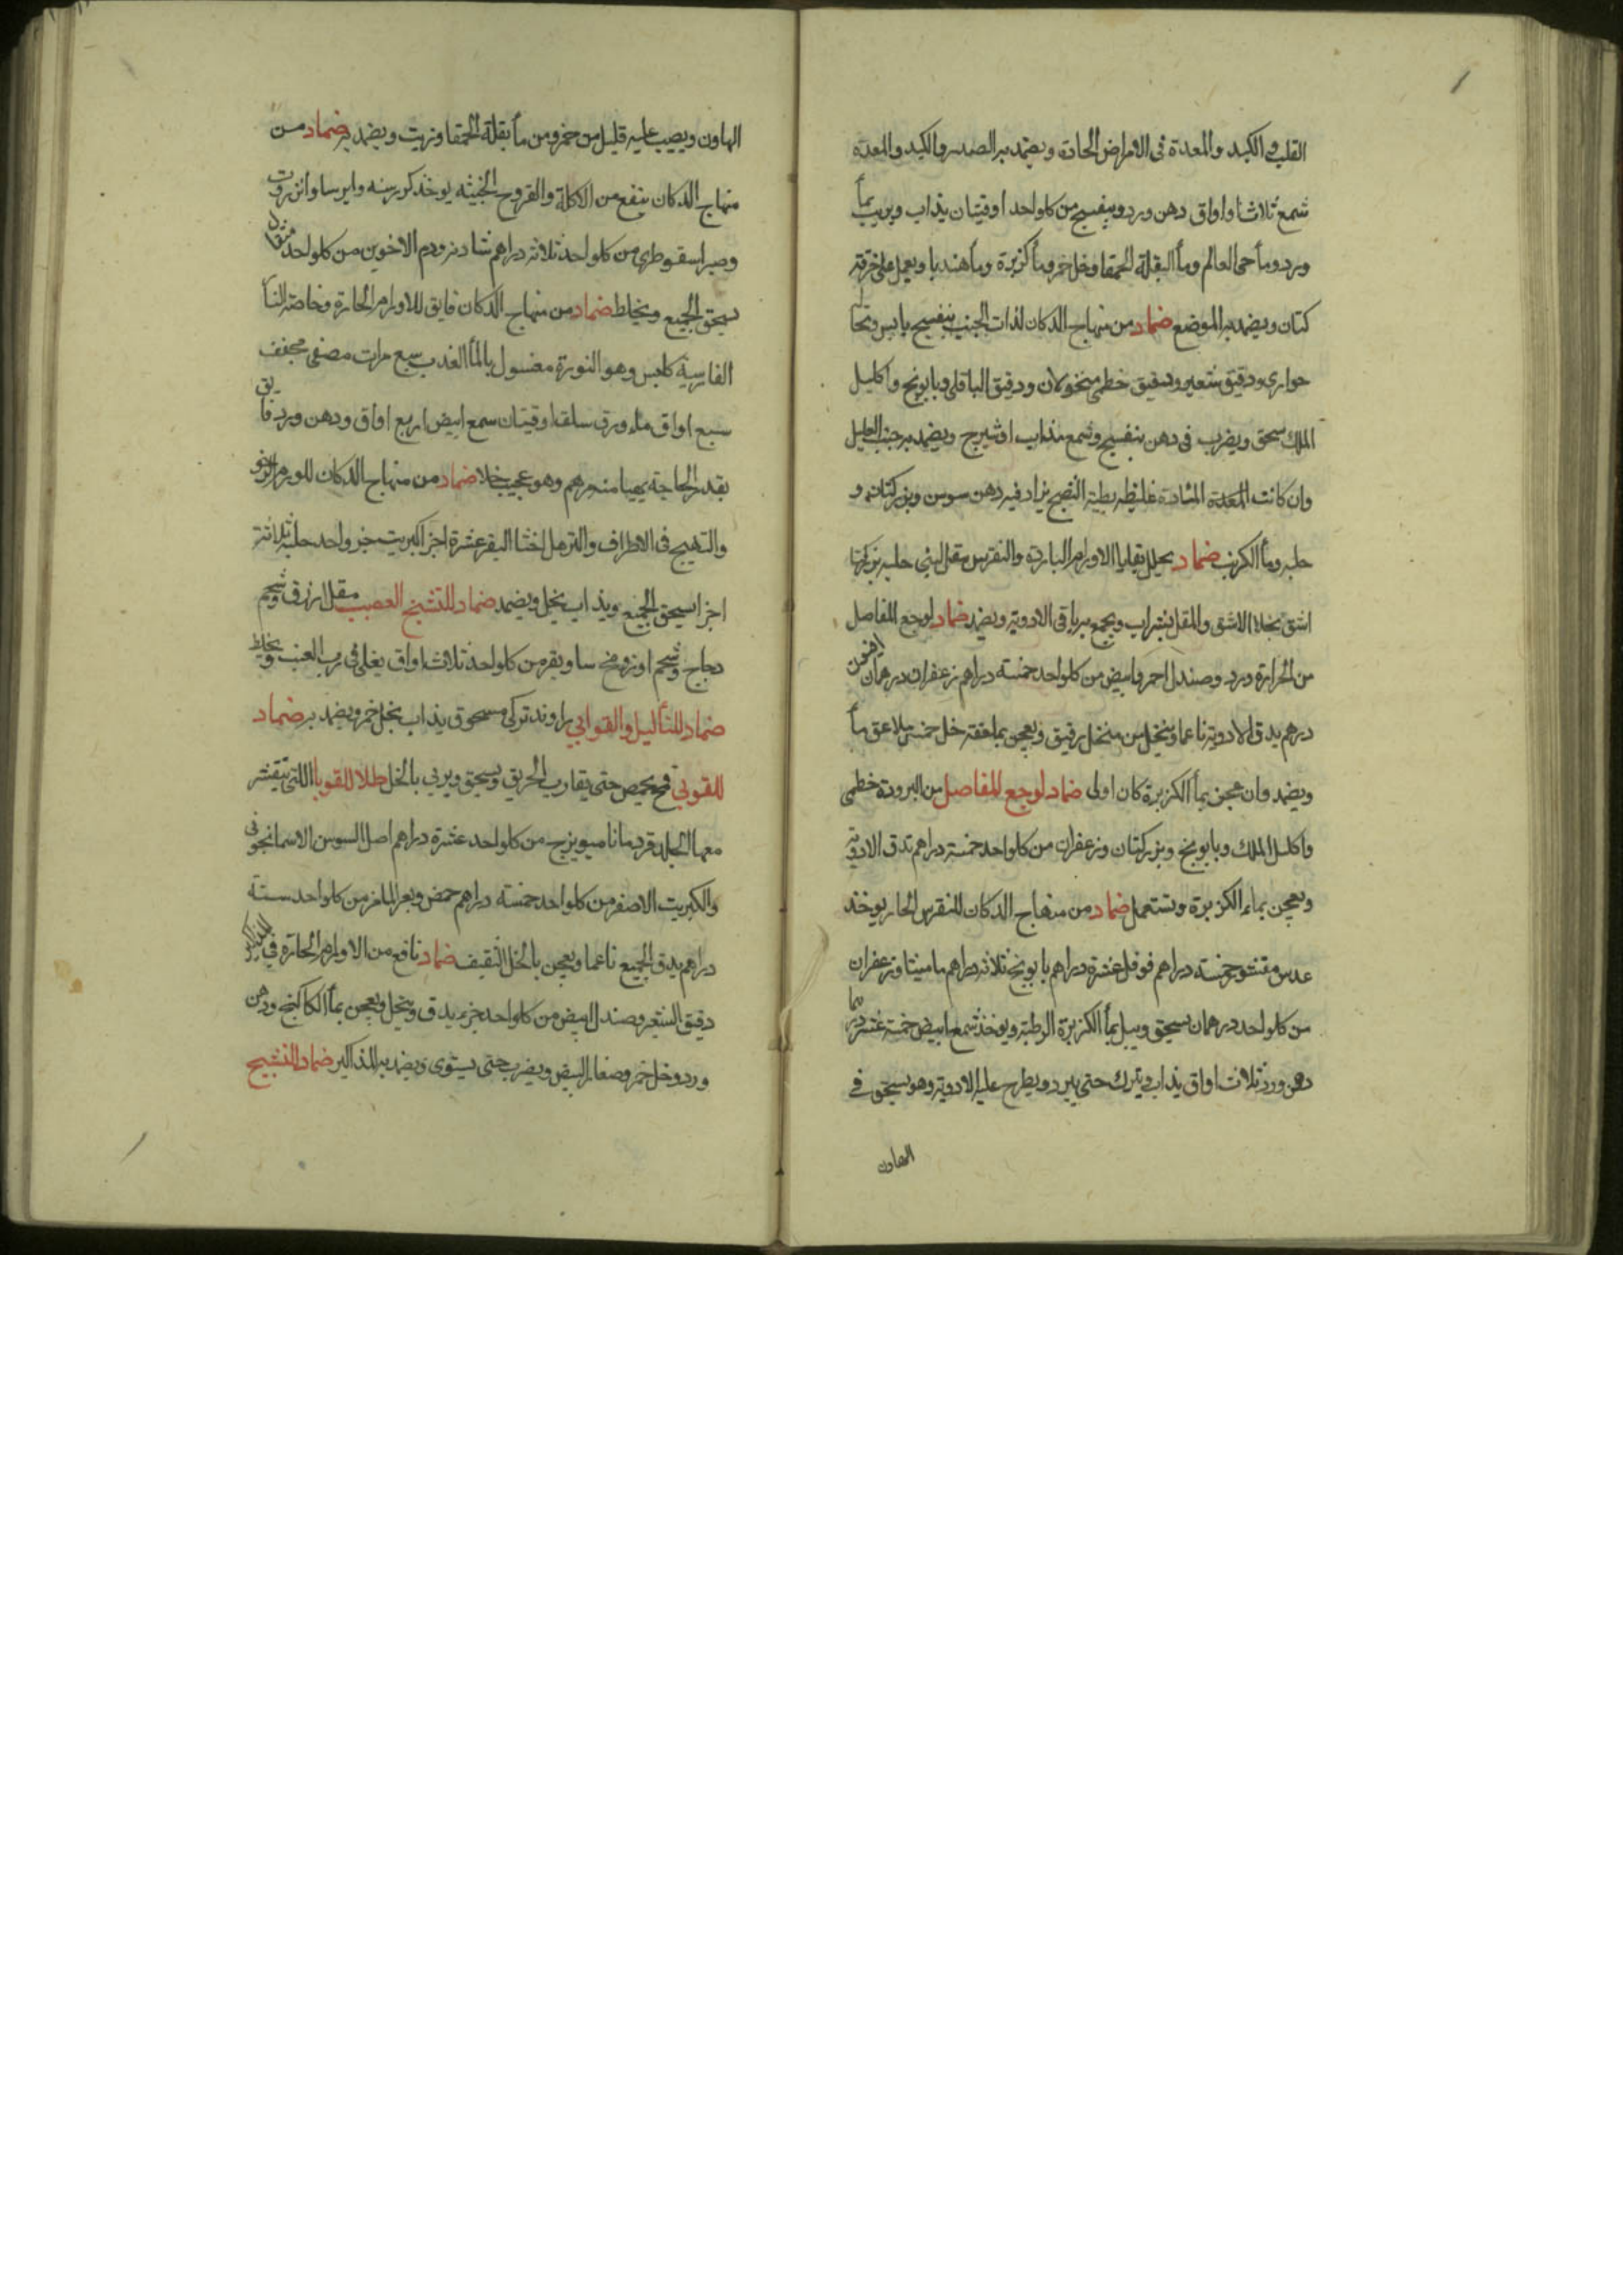 القلب والكبد والمعدة فى الامراض الحادة ويضمد به الصدر والكبد والمعدة
شمع ثلاث اواق دهن ورد وبنفسج من كل واحد اوقيتان يذاب ويربب بمأ
ورد ومأ حى العالم ومأ البقلة الحمقا وخل خمر ومأ كزبرة ومأ هندبا ويعمل على خرقة
كتان ويضمد به الموضع ضماد من منهاج الدكان لذات الجنب بنفسج يابس ونخالة
حوارى ودقيق شعير ودقيق خطمى منخولان ودقيق الباقلى وبابونج واكليل
الملك يسحق ويضرب فى دهن بنفسج وشمع مذاب اوشيرج ويضمد به جنب العليل
وان كانت المادة غليظه بطية النضج يزاد فيه دهن سوسن وبزر كتان و
حلبه ومأ الكرنب ضماد يحلل بقايا الاورام الباردة والنقرس مقل لينى حلبه بزر كتان
اشق يحلا الاشق والمقل بشراب ويجمع به باقى الادوية ويضمد ضماد لوجع المفاصل
من الحرارة ورد وصندل احمر وابيض من كل واحد خمسة دراهم زعفران درهمان افيون
درهم يدق الادوية ناعما وينخل من منخل رقيق ويعجن بملعقة خل خمس ملاعق مأ
ويضمد وان عجن بمأ الكزبرة كان اولى ضماد لوجع المفاصل من البرودة خطمى
واكليل الملك وبابونج وبزر كتان وزعفران من كل واحد خمسة دراهم تدق الادوية
ويعجن بماء الكزبرة ويستعمل ضماد من منهاج الدكان للنقرس الحار يوخذ
عدس مقشو خمسة دراهم فوفل عشرة دراهم بابونج ثلاثة دراهم ماميثا وزعفران
من كل واحد درهمان يسحق ويبل بمأ الكزبرة الرطبة ويوخذ شمع ابيض خمسة عشر درهما
دهن ورد ثلاث اواق يذاب ويترك حتى يبرد ويطرح عليه الادوية وهو يسحق فى
الهاون
الهاون ويصب عليه قليل من خمر ومن مأ بقلة الحمقا وزيت ويضمد به ضماد من
منهاج الدكان ينفع من الاكلة والقروح الخبيثه يوخذ كرسنه وايرسا وانزروت
وصبر اسقوطرى من كل واحد ثلاثة دراهم شادنه ودم الاخوين من كل واحد مثقال
يسحق الجميع ويخلط ضماد من منهاج الدكان فايق للاورام الحارة وخاصة النار
الفارسية كلس وهو النورة مغسول بالمأ العذب سبع مرات مصفى مجفف
سبع اواق ماء ورق سلق اوقيتان سمع ابيض اربع اواق ودهن ورد فايق
بقدر الحاجة يهيا منه مرهم وهو عجيب ضماد من منهاج الدكان للورم الرخو
والتهيج فى الاطراف والترهل اخثا البقر عشرة اجزا كبريت جز واحد حلبه ثلاثة
اجزا يسحق الجميع ويذاب بخل ويضمد ضماد للتشنج العصب مقل ازرق وشحم
دجاج وشحم اوز ومخ ساق بقر من كل واحد ثلاث اواق يغلى فى رب العنب ويخلط
ضماد للثأليل والقوابي راوند تركى مسحوق يذاب بخل خمر ويضمد به ضماد
للقوبي قمح يحمص حتى يقارب الحريق ويسحق ويربي بالخل طلا للقوبا اللتى يتقشر
معها الجلد قردمانا ميويزج من كل واحد عشرة دراهم اصل السوسن الاسمانجونى
والكبريت الاصفر من كل واحد خمسة دراهم حمض وبعر الماعز من كل واحد ستة
دراهم يدق الجميع ناعما ويعجن بالخل الثقيف ضماد نافع من الاورام الحارة فى المذاكير
دقيق الشعير وصندل ابيض من كل واحد جزء يدق وينخل ويعجن بمأ الكاكنج ودهن
ورد وخل خمر وصفار البيض ويضرب حتى يستوى ويضمد به المذاكير ضماد للتشنج